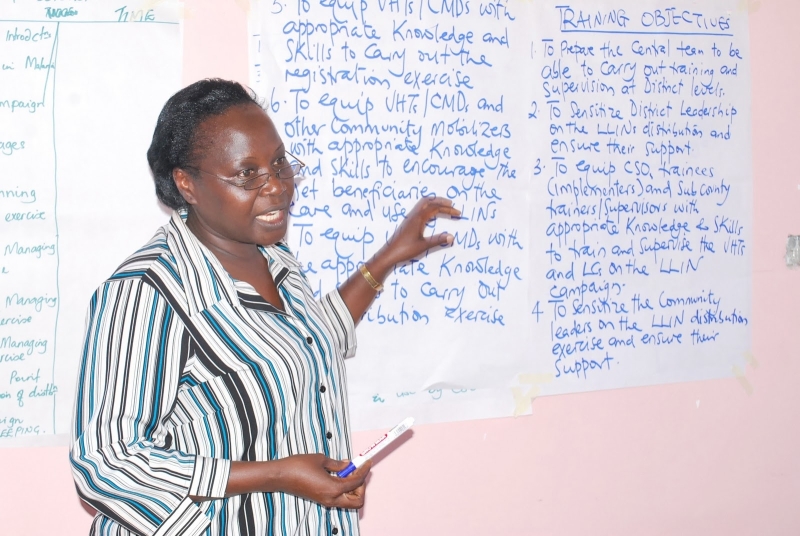 TIME
Introdcts
campaign
ages
nning
exercise
Managing
Managing
ercise
Managing
rcise
Pourit
on of distb
ign
EEPING.
5. To equip VHTs/CMDs with
appropriate Knowledge and
Skills to Carry out the
registration exercise
6. To equip VHTs/CMDs and
other Community Mobilizers
with appropriate Knowledge
and Skills to encourage the
et beneficiaries on the
Care and use LLINs
To equip MDs with
e appropriate Knowledge
to Carry out
tribution exercise
TRAINING OBJECTIVES
1. To Prepare the Central team to be
able to Carry out training and
Supervision at District levels.
2. To Sensitize District Leadership
on the LLINs distribution and
ensure their Support.
3. To equip CSO, trainees
(implementers) and Sub County
trainers/Supervisors with
appropriate Knowledge & Skills
to train and Supervise the VHTs
and LCs on the LLIN
Campaign.
4 To Sensitize the Community
leaders on the LLIN distribution
exercise and ensure their
Support.